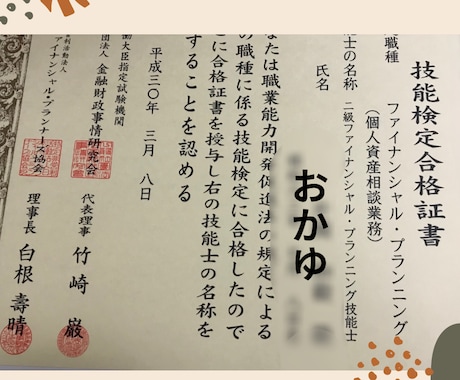 技能検定合格証書
職種
ファイナンシャル・プランニング
（個人資産相談業務）
士の名称 二級ファイナンシャル・プランニング技能士
氏名
おかゆ
なたは職業能力開発促進法の規定による
の職種に係る技能検定に合格したので
こに合格証書を授与し右の技能士の名称を
することを認める
平成三〇年 三月 八日
働大臣指定試験機関
団法人 金融財政事情研究会
代表理事 竹崎 巌
利活動法人
ァイナンシャル・プランナーズ協会
理事長 白根 壽晴